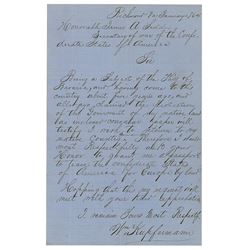 Richmond Va January 64
Honorable James A Seddon
Secretary of war of the Confe-
derate States of America
Sir
Being a Subject of the King of
Bavaria, and having come to this
country about five years ago and
always claimed the protection
of the Government of my native land
as the consul can
testify I wish to return to my
native Country. Therefore I would
most Respectfully ask your
Honor to grant me a passport
to leave the confederate States
of America for Europe by land
Hopping that this my request will
meet with your kind approbation
I remain Yours Most Respectfy
Wm Kupfermann